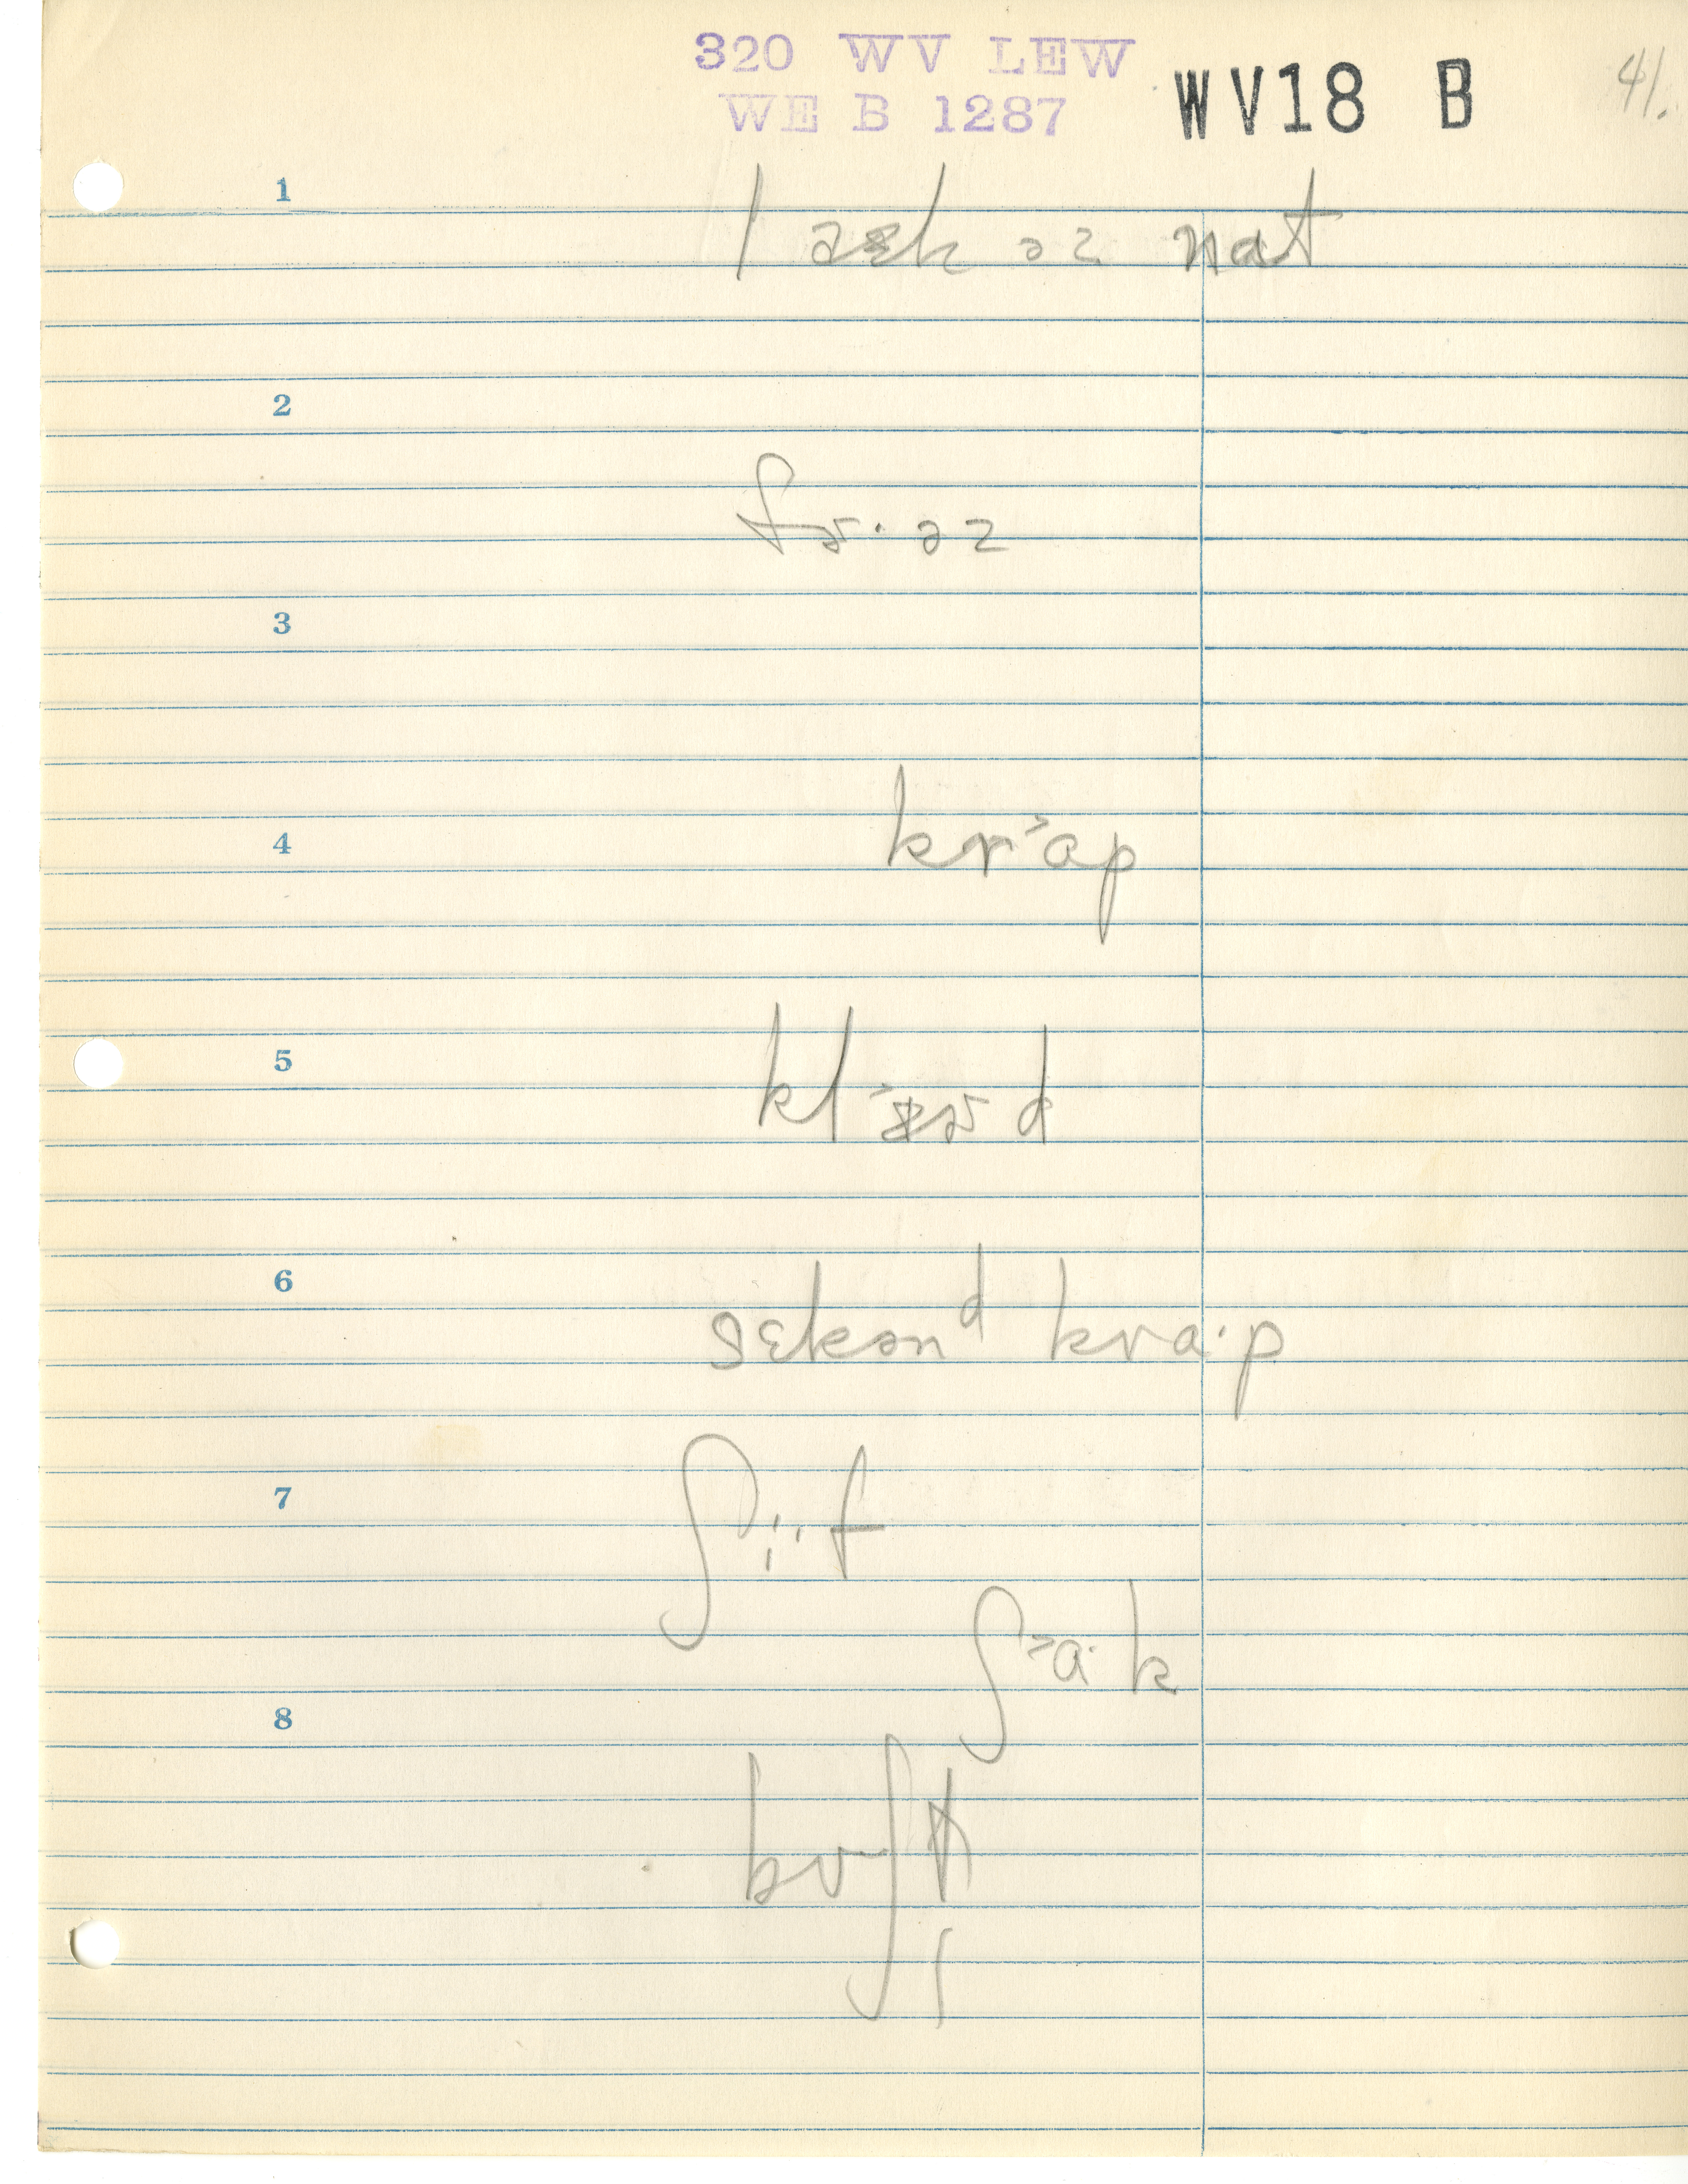 320 WV LEW
WE B 1287
WV18 B
41.
1
| æək əz nat
2
fɚ·əz
3
kr˃ap
4
kl˃æɚd
5
6
sɛkənᵈ kra·p
7
ʃi·f
ʃ˃a·k
8